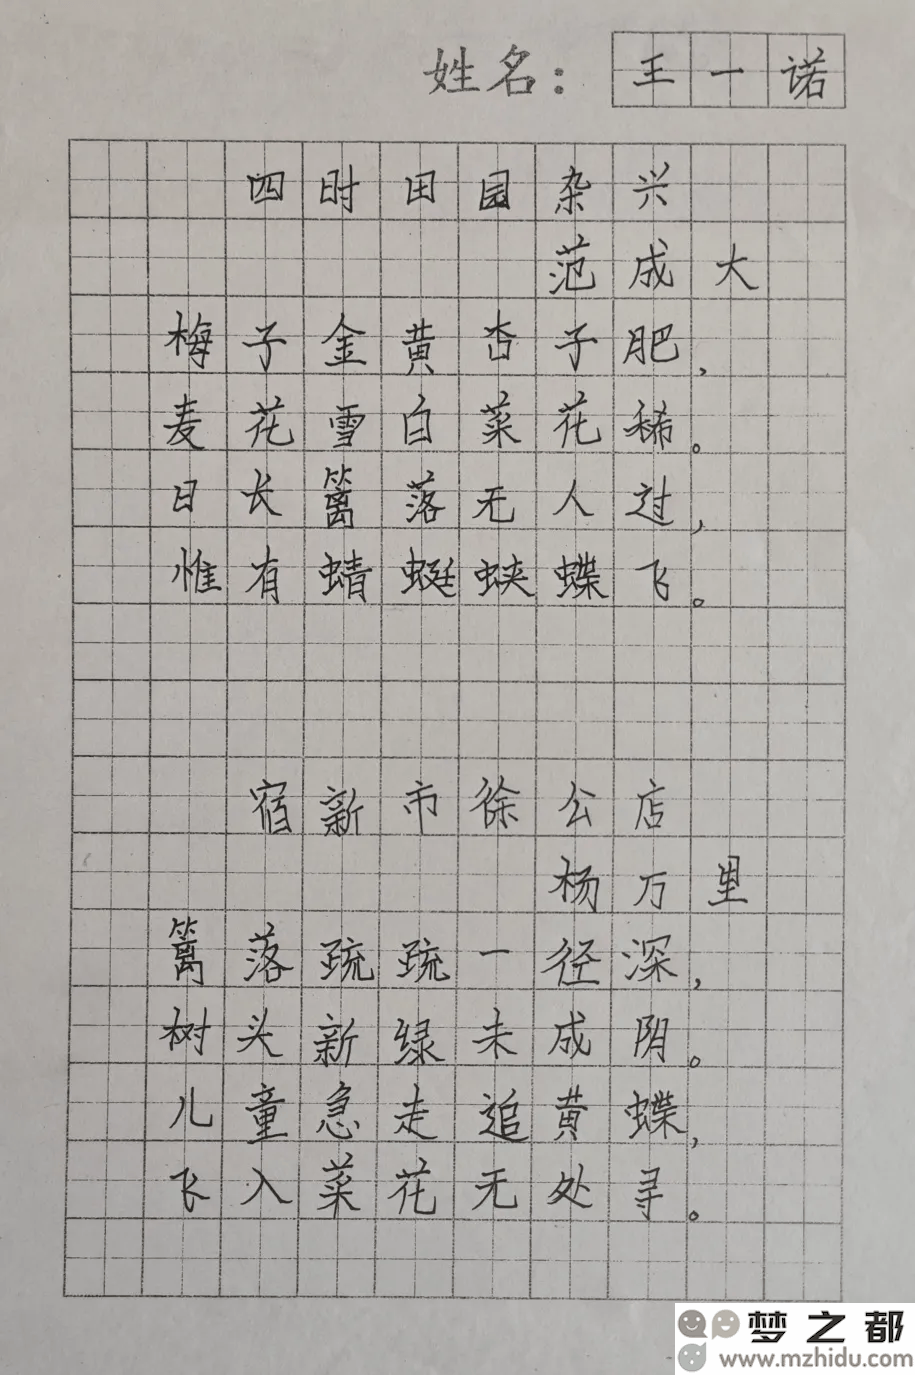 姓名：王一诺
四时田园杂兴
范成大
梅子金黄杏子肥，
麦花雪白菜花稀。
日长篱落无人过，
惟有蜻蜓蛱蝶飞。
宿新市徐公店
杨万里
篱落疏疏一径深，
树头新绿未成阴。
儿童急走追黄蝶，
飞入菜花无处寻。
梦之都
www.mzhidu.com